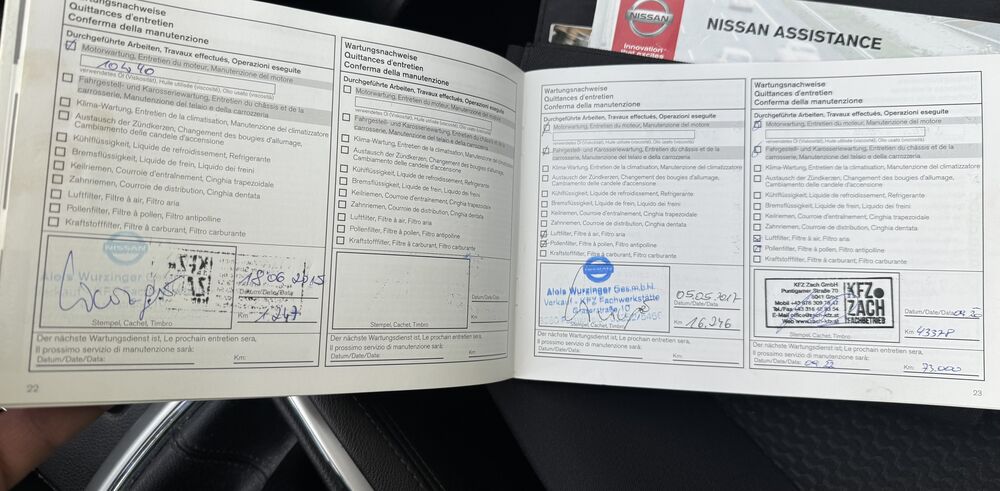 Wartungsnachweise
Quittances d'entretien
Conferma della manutenzione
Durchgeführte Arbeiten, Travaux effectués, Operazioni eseguite
Motorwartung, Entretien du moteur, Manutenzione del motore
10W40
verwendetes Öl (Viskosität), Huile utilisée (viscosité), Olio usato (viscosità)
Fahrgestell- und Karosseriewartung, Entretien du châssis et de la
carrosserie, Manutenzione del telaio e della carrozzeria
Klima-Wartung, Entretien de la climatisation, Manutenzione del climatizzatore
Austausch der Zündkerzen, Changement des bougies d'allumage,
Cambiamento delle candele d'accensione
Kühlflüssigkeit, Liquide de refroidissement, Refrigerante
Bremsflüssigkeit, Liquide de frein, Liquido dei freini
Keilriemen, Courroie d'entraînement, Cinghia trapezoidale
Zahnriemen, Courroie de distribution, Cinghia dentata
Luftfilter, Filtre à air, Filtro aria
Pollenfilter, Filtre à pollen, Filtro antipolline
Kraftstofffilter, Filtre à carburant, Filtro carburante
NISSAN
Alois Wurzinger
18 06 2015
Datum/Date/Data
1247
Km
Stempel, Cachet, Timbro
Der nächste Wartungsdienst ist, Le prochain entretien sera,
Il prossimo servizio di manutenzione sarà:
Datum/Date/Data:
Km:
22
Wartungsnachweise
Quittances d'entretien
Conferma della manutenzione
Durchgeführte Arbeiten, Travaux effectués, Operazioni eseguite
Motorwartung, Entretien du moteur, Manutenzione del motore
verwendetes Öl (Viskosität), Huile utilisée (viscosité), Olio usato (viscosità)
Fahrgestell- und Karosseriewartung, Entretien du châssis et de la
carrosserie, Manutenzione del telaio e della carrozzeria
Klima-Wartung, Entretien de la climatisation, Manutenzione del climatizzatore
Austausch der Zündkerzen, Changement des bougies d'allumage,
Cambiamento delle candele d'accensione
Kühlflüssigkeit, Liquide de refroidissement, Refrigerante
Bremsflüssigkeit, Liquide de frein, Liquido dei freini
Keilriemen, Courroie d'entraînement, Cinghia trapezoidale
Zahnriemen, Courroie de distribution, Cinghia dentata
Luftfilter, Filtre à air, Filtro aria
Pollenfilter, Filtre à pollen, Filtro antipolline
Kraftstofffilter, Filtre à carburant, Filtro carburante
Datum/Date/Data
Km:
Stempel, Cachet, Timbro
Der nächste Wartungsdienst ist, Le prochain entretien sera,
Il prossimo servizio di manutenzione sarà:
Datum/Date/Data:
Km:
NISSAN
Innovation
that excites
NISSAN ASSISTANCE
Wartungsnachweise
Quittances d'entretien
Conferma della manutenzione
Durchgeführte Arbeiten, Travaux effectués, Operazioni eseguite
Motorwartung, Entretien du moteur, Manutenzione del motore
verwendetes Öl (Viskosität), Huile utilisée (viscosité), Olio usato (viscosità)
Fahrgestell- und Karosseriewartung, Entretien du châssis et de la
carrosserie, Manutenzione del telaio e della carrozzeria
Klima-Wartung, Entretien de la climatisation, Manutenzione del climatizzatore
Austausch der Zündkerzen, Changement des bougies d'allumage,
Cambiamento delle candele d'accensione
Kühlflüssigkeit, Liquide de refroidissement, Refrigerante
Bremsflüssigkeit, Liquide de frein, Liquido dei freini
Keilriemen, Courroie d'entraînement, Cinghia trapezoidale
Zahnriemen, Courroie de distribution, Cinghia dentata
Luftfilter, Filtre à air, Filtro aria
Pollenfilter, Filtre à pollen, Filtro antipolline
Kraftstofffilter, Filtre à carburant, Filtro carburante
Alois Wurzinger Ges.m.b.H.
Verkauf - KFZ Fachwerkstätte
Grazerstraße 10
05.05.2017
Datum/Date/Data
Km: 16,246
Stempel, Cachet, Timbro
Der nächste Wartungsdienst ist, Le prochain entretien sera,
Il prossimo servizio di manutenzione sarà:
Datum/Date/Data:
Km:
Wartungsnachweise
Quittances d'entretien
Conferma della manutenzione
Durchgeführte Arbeiten, Travaux effectués, Operazioni eseguite
Motorwartung, Entretien du moteur, Manutenzione del motore
verwendetes Öl (Viskosität), Huile utilisée (viscosité), Olio usato (viscosità)
Fahrgestell- und Karosseriewartung, Entretien du châssis et de la
carrosserie, Manutenzione del telaio e della carrozzeria
Klima-Wartung, Entretien de la climatisation, Manutenzione del climatizzatore
Austausch der Zündkerzen, Changement des bougies d'allumage,
Cambiamento delle candele d'accensione
Kühlflüssigkeit, Liquide de refroidissement, Refrigerante
Bremsflüssigkeit, Liquide de frein, Liquido dei freini
Keilriemen, Courroie d'entraînement, Cinghia trapezoidale
Zahnriemen, Courroie de distribution, Cinghia dentata
Luftfilter, Filtre à air, Filtro aria
Pollenfilter, Filtre à pollen, Filtro antipolline
Kraftstofffilter, Filtre à carburant, Filtro carburante
KFZ Zach GmbH
Puntigamer Straße 70
KFZ
ZACH
FACHBETRIEB
Datum/Date/Data
Km: 43378
Stempel, Cachet, Timbro
Der nächste Wartungsdienst ist, Le prochain entretien sera,
Il prossimo servizio di manutenzione sarà:
Datum/Date/Data: 09.22
Km: 73.000
23